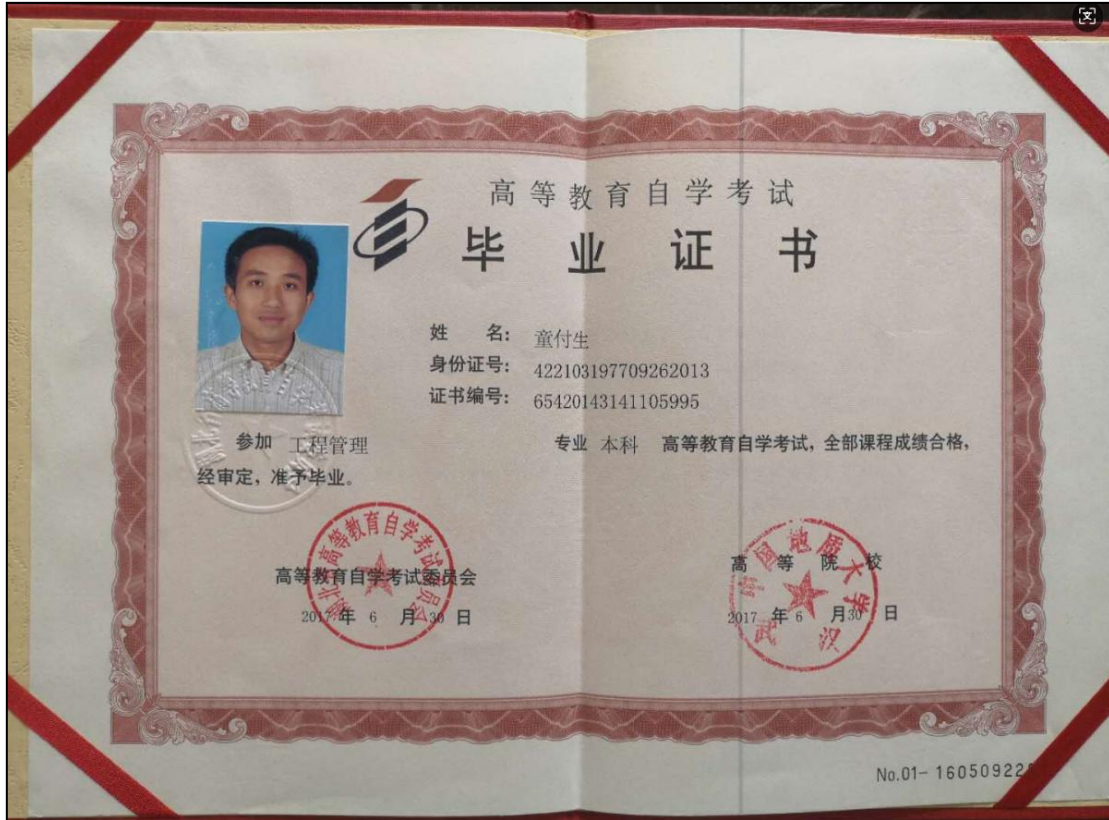 高等教育自学考试
毕业证书
姓 名： 童付生
身份证号： 422103197709262013
证书编号： 65420143141105995
参加 工程管理 专业 本科 高等教育自学考试，全部课程成绩合格，
经审定，准予毕业。
湖北省高等教育自学考试委员会
高等教育自学考试委员会
2017 年 6 月 30 日
中国地质大学
武汉
高 等 院 校
2017 年 6 月 30 日
No.01- 16050922